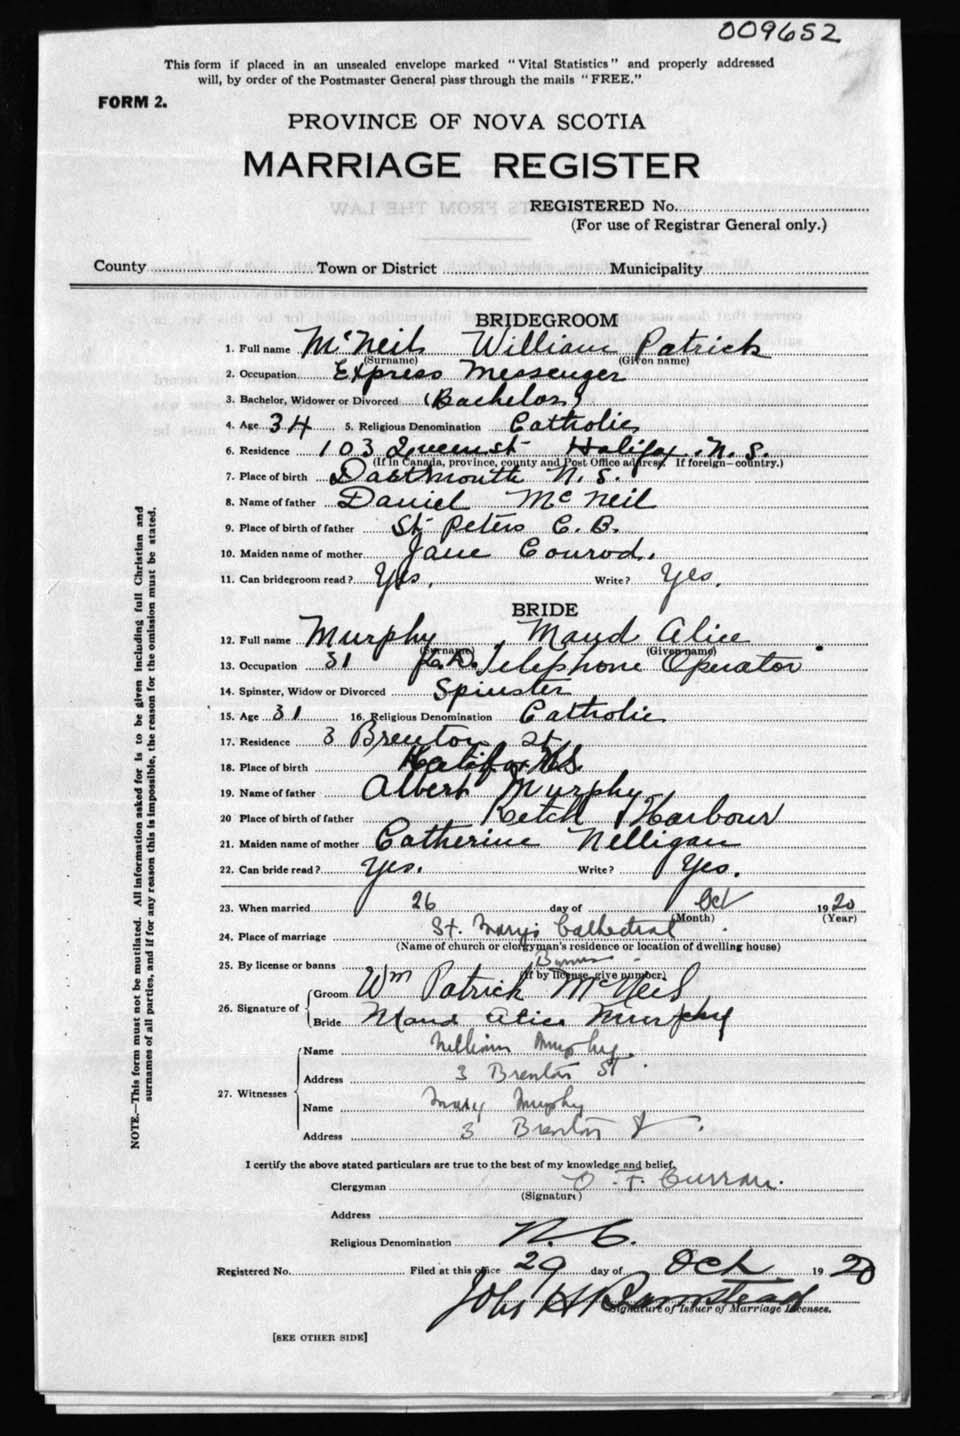 009652
This form if placed in an unsealed envelope marked "Vital Statistics" and properly addressed
will, by order of the Postmaster General pass through the mails "FREE."
FORM 2.
PROVINCE OF NOVA SCOTIA
MARRIAGE REGISTER
REGISTERED No.
(For use of Registrar General only.)
County Town or District Municipality
BRIDEGROOM
1. Full name McNeil William Patrick
(Surname) (Given name)
2. Occupation Express Messenger
3. Bachelor, Widower or Divorced (Bachelor)
4. Age 34 5. Religious Denomination Catholic
6. Residence 103 Queen st Halifax. N. S.
(If in Canada, province, county and Post Office address. If foreign—country.)
7. Place of birth Dartmouth N. S.
8. Name of father Daniel McNeil
9. Place of birth of father St Peters C. B.
10. Maiden name of mother Jane Conrod.
11. Can bridegroom read? Yes. Write? Yes.
BRIDE
12. Full name Murphy, Maud Alice
(Surname) (Given name)
13. Occupation 31 Telephone Operator
14. Spinster, Widow or Divorced Spinster
15. Age 31 16. Religious Denomination Catholic
17. Residence 3 Brenton St
18. Place of birth Halifax N.S.
19. Name of father Albert Murphy
20 Place of birth of father Ketch Harbour
21. Maiden name of mother Catherine Nelligan
22. Can bride read? Yes. Write? Yes.
23. When married 26 day of Oct 1920
(Month) (Year)
24. Place of marriage St. Mary's Cathedral
(Name of church or clergyman's residence or location of dwelling house)
25. By license or banns Banns
(If by license, give number)
26. Signature of Groom Wm Patrick McNeil
Bride Maud Alice Murphy
27. Witnesses Name William Murphy
Address 3 Brenton St.
Name Mary Murphy
Address 3 Brenton St.
I certify the above stated particulars are true to the best of my knowledge and belief.
Clergyman O. T. Curran.
(Signature)
Address
Religious Denomination R. C.
Registered No. Filed at this office 29 day of Oct 1920
John H Barnstead
Signature of Issuer of Marriage Licenses.
[SEE OTHER SIDE]
NOTE.—This form must not be mutilated. All information asked for is to be given including full Christian and
surnames of all parties, and if for any reason this is impossible, the reason for the omission must be stated.